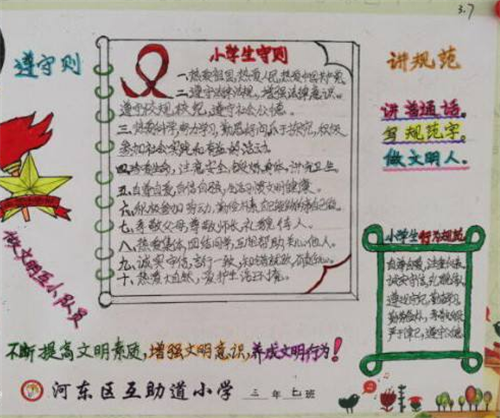 3.7
遵守则
小学生守则
一、热爱祖国,热爱人民,热爱中国共产党。
二、遵守法律法规,增强法律意识。
遵守校规校纪,遵守社会公德。
三、热爱科学,努力学习,勤思好问,乐于探究,积极
参加社会实践和有益的活动。
四、珍爱生命,注意安全,锻炼身体,讲究卫生。
五、自尊自爱,自信自强,生活习惯文明健康。
六、积极参加劳动,勤俭朴素,自己能做的事自己做。
七、孝敬父母,尊敬师长,礼貌待人。
八、热爱集体,团结同学,互相帮助,关心他人。
九、诚实守信,言行一致,知错就改,有责任心。
十、热爱大自然,爱护生活环境。
讲规范
讲普通话。
写规范字。
做文明人。
小学生行为规范
自尊自爱,注重仪表
诚实守信,礼貌待人
遵规守纪,勤奋学习
勤劳俭朴,孝敬父母
严于律己,遵守公德
做文明区小队员
不断提高文明素质,增强文明意识,养成文明行为!
河东区互助道小学 三年七班